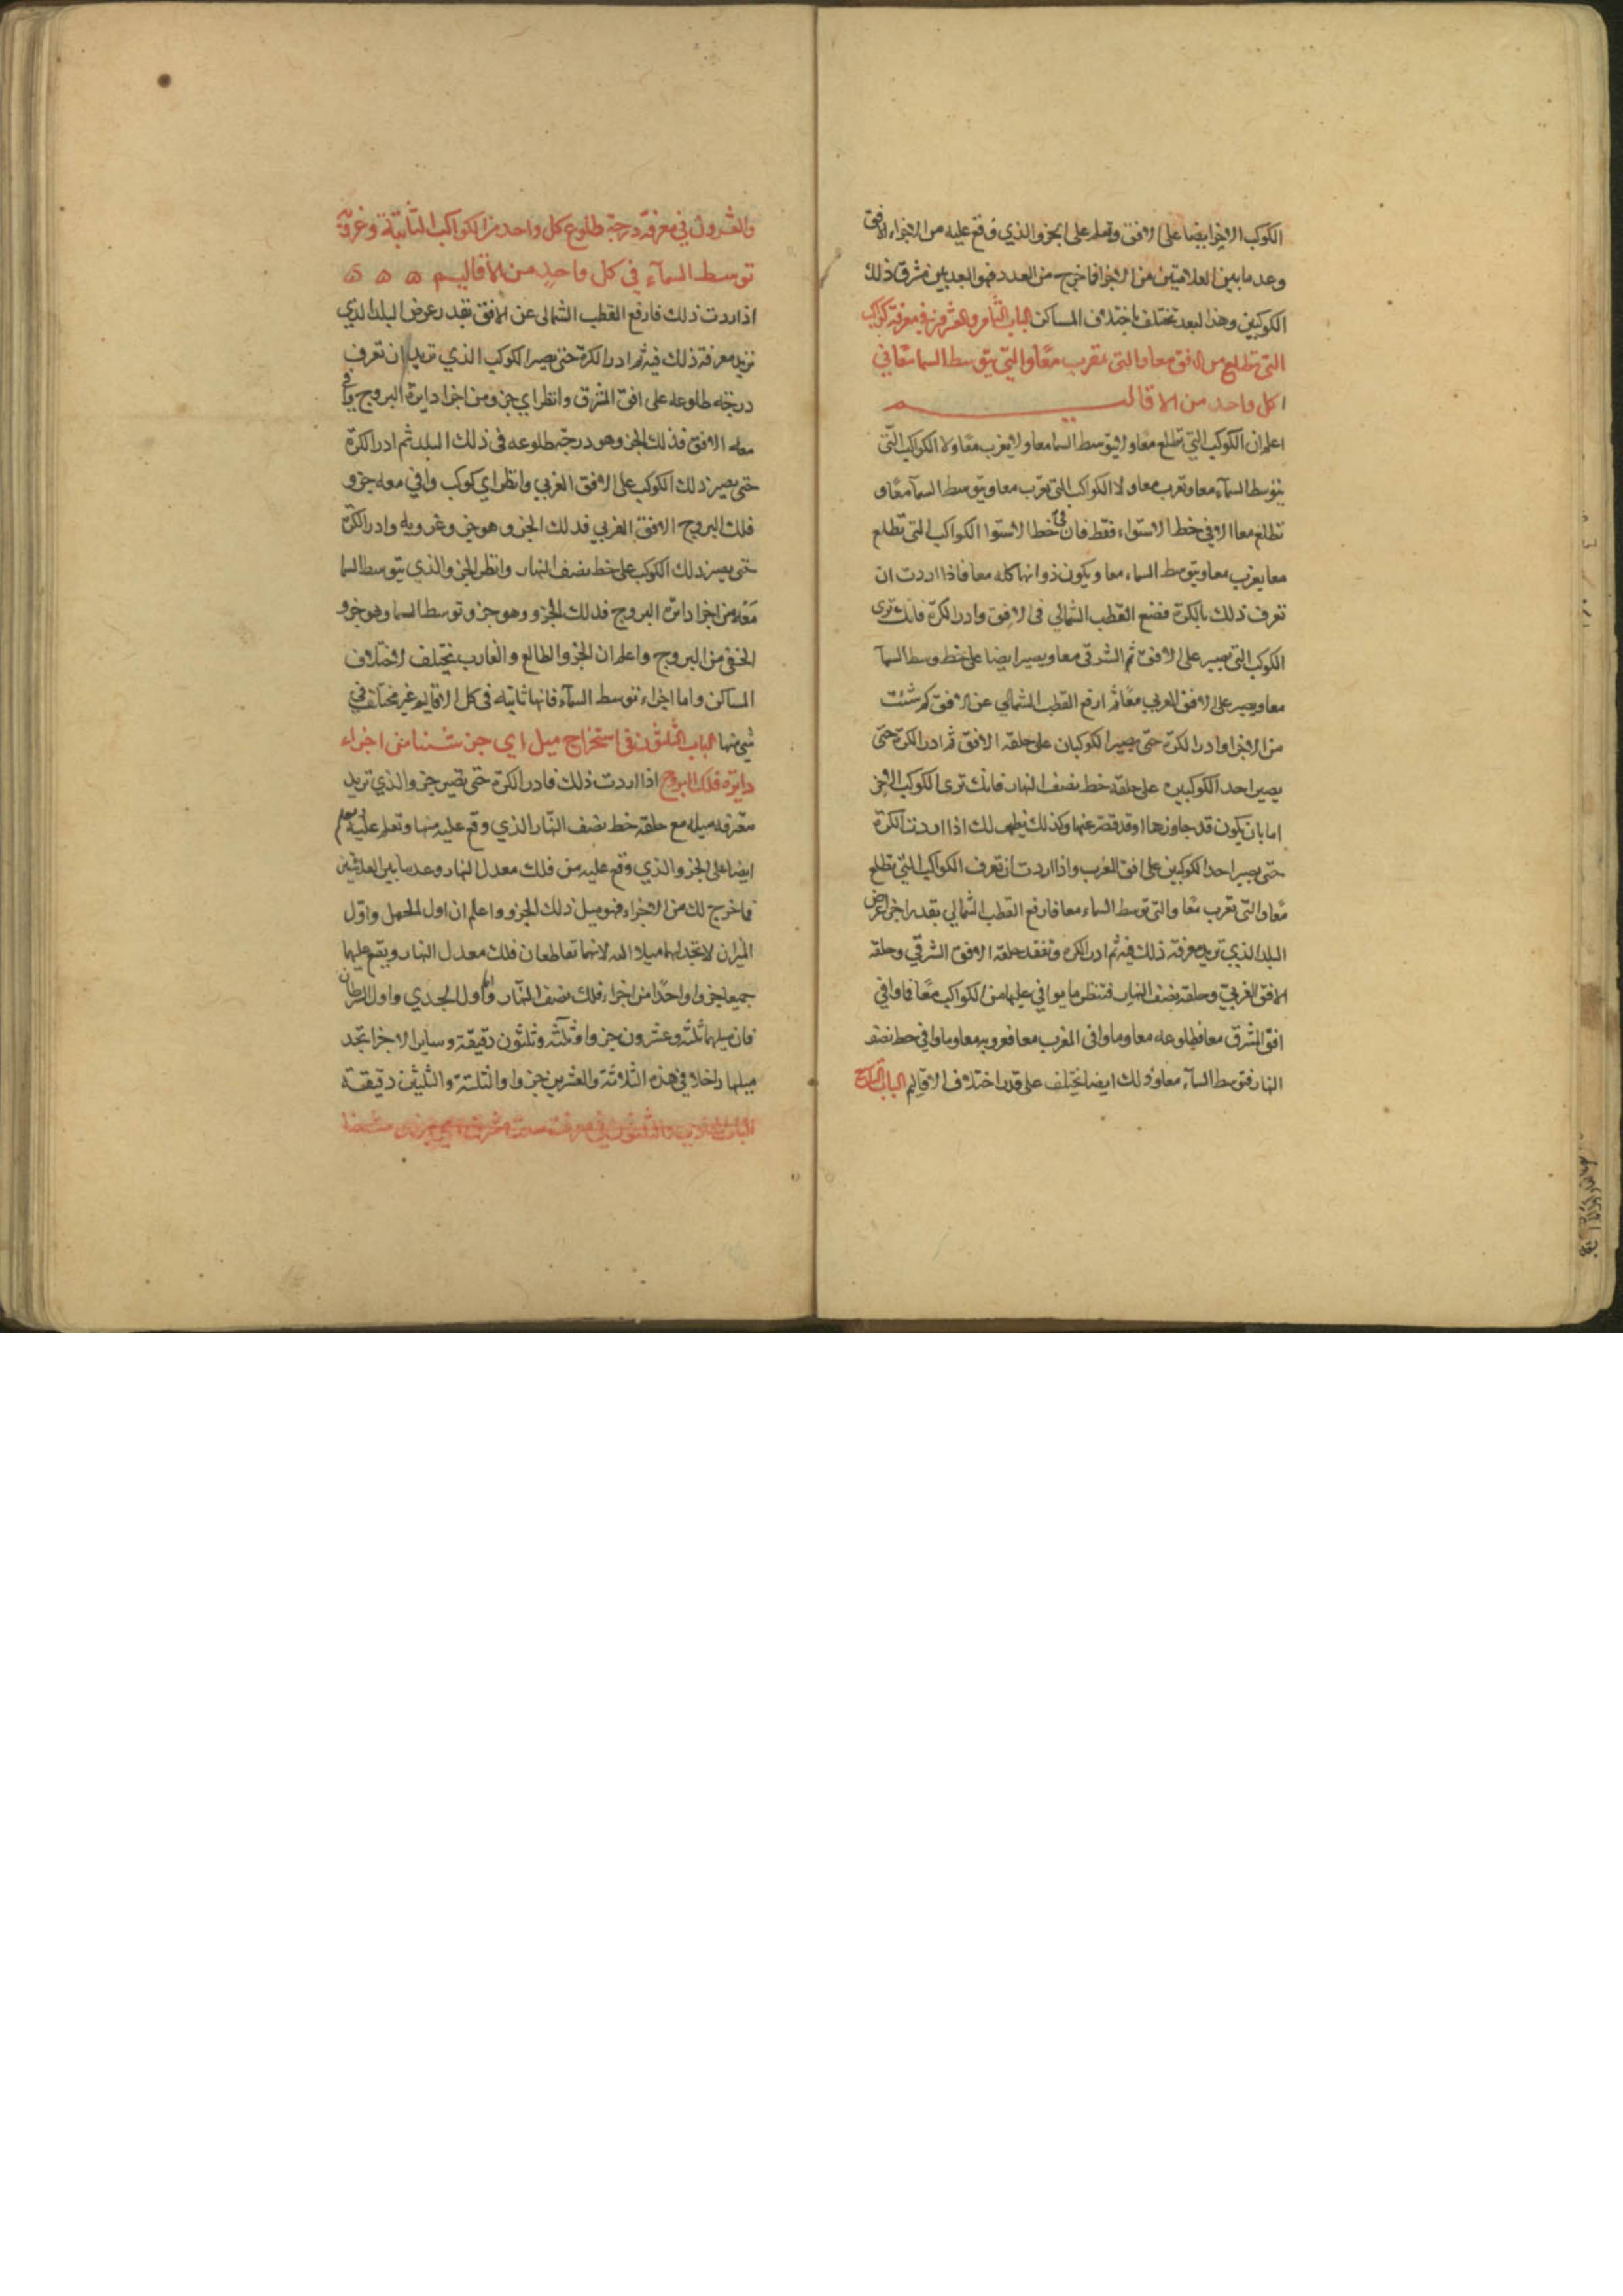 الكوكب الاخر ايضا على الافق وتعلم على الجزو الذي وقع عليه من اجزاء الافق
وعد ما بين العلامتين من الاجزا فما خرج من العدد فهو البعد بين مشرق ذلك
الكوكبين وهذا البعد تختلف باختلاف المساكن الباب الثامن والعشرون في معرفة كواكب
التي تطلع من الافق معا والتي تغرب معًا والتي يتوسط السما معًا في
كل واحد من الاقاليم
اعلم ان الكوكب التي تطلع معًا ولا يتوسط السما معا ولا يغرب معًا ولا الكواكب التي
يتوسط السماء معا وتغرب معا ولا الكواكب التي تغرب معا ويتوسط السما معًا و
تطلع معا الا في خط الاستواء فقط فان في خط الاستوا الكواكب التي تطلع
معا يغرب معا ويتوسط السماء معا ويكون دورانها كله معا فاذا اردت ان
تعرف ذلك بالكرة فضع القطب الشمالي في الافق وادر الكرة فانك ترى
الكوكب التي يصير على الافق ثم الشرقي معا ويصير ايضا على خط وسط السما
معا ويصير على الافق الغربي معًا ثم ارفع القطب الشمالي عن الافق كم شئت
من الاجزا وادر الكرة حتى يصير الكوكبان على حلقة الافق ثم ادر الكرة حتى
يصير احد الكوكبين على حلقة خط نصف النهار فانك ترى الكوكب الاخر
اما بان يكون قد جاوزها او قد قصر عنها وكذلك يظهر لك اذا اردت الكرة
حتى يصير احد الكوكبين على افق المغرب واذا اردت ان تعرف الكواكب التي تطلع
معًا والتي تغرب معًا والتي توسط السماء معا فارفع القطب الشمالي بقدر اجزا عرض
البلد الذي تريد معرفة ذلك فيه ثم ادر الكرة وتفقد حلقة الافق الشرقي وحلقة
الافق الغربي وحلقة نصف النهار فتنظر ما يوافي عليها من الكواكب معًا فما وافي
افق المشرق معا فطلوعه معا وما وافى المغرب معا فغروبه معا وما وافي خط نصف
النهار فتوسط السماء معا وذلك ايضا يختلف على قدر اختلاف الاقاليم الباب التاسع
والعشرون في معرفة درجة طلوع كل واحد من الكواكب الثابتة وغروبه
توسط السماء في كل واحدٍ من الأقاليم ه ه ه
اذا اردت ذلك فارفع القطب الشمالى عن الافق بقدر عرض البلد الذي
تريد معرفة ذلك فيه ثم ادر الكرة حتى يصير الكوكب الذي تريد ان تعرف
درجة طلوعه على افق المشرق وانظر اي جزو من اجزا دايرة البروج يوافي
معه الافق فذلك الجزو هو درجة طلوعه في ذلك البلد ثم ادر الكرة
حتى يصير ذلك الكوكب على الافق الغربي وانظر اي كوكب وافي معه جزو
فلك البروج الافق الغربي فذلك الجزو هو جزو غروبه وادر الكرة
حتى يصير ذلك الكوكب على خط نصف النهار وانظر الجزو الذي يتوسط السما
معه من اجزا دائرة البروج فذلك الجزو وهو جزو توسط السما وهو جزو
الخفي من البروج واعلم ان الجزو الطالع والغارب يختلف لاختلاف
المساكن واما اجزاء توسط السماء فانها ثابته في كل الاقاليم غير مختلف في
شي منها الباب الثلثون في استخراج ميل اي جزء شئنا من اجزاء
دايرة فلك البروج اذا اردت ذلك فادر الكرة حتى يصير جزو الذي تريد
معرفة ميله مع حلقة خط نصف النهار الذي وقع عليه منها وتعلم عليه وتعلم
ايضا على الجزو الذي وقع عليه من فلك معدل النهار وعد ما بين العلامتين
فما خرج لك من الاجزاء فهو ميل ذلك الجزو واعلم ان اول الحمل واوّل
الميزان لا تجد لهما ميلا البته لانهما تقاطعان فلك معدل النهار ويقع عليهما
جميعا جزوا واحدًا من اجزاء فلك نصف النهار واما اول الجدي واول السرطان
فان ميلهما ثلثة وعشرون جزوا وثلثة وثلثون دقيقة وساير الاجزا تجد
ميلها داخلا في هذه الثلاثة والعشرين جزوا والثلثة والثلثين دقيقة
الباب الحادي والثلثون في معرفة سعة مشرق اي جزء شئنا